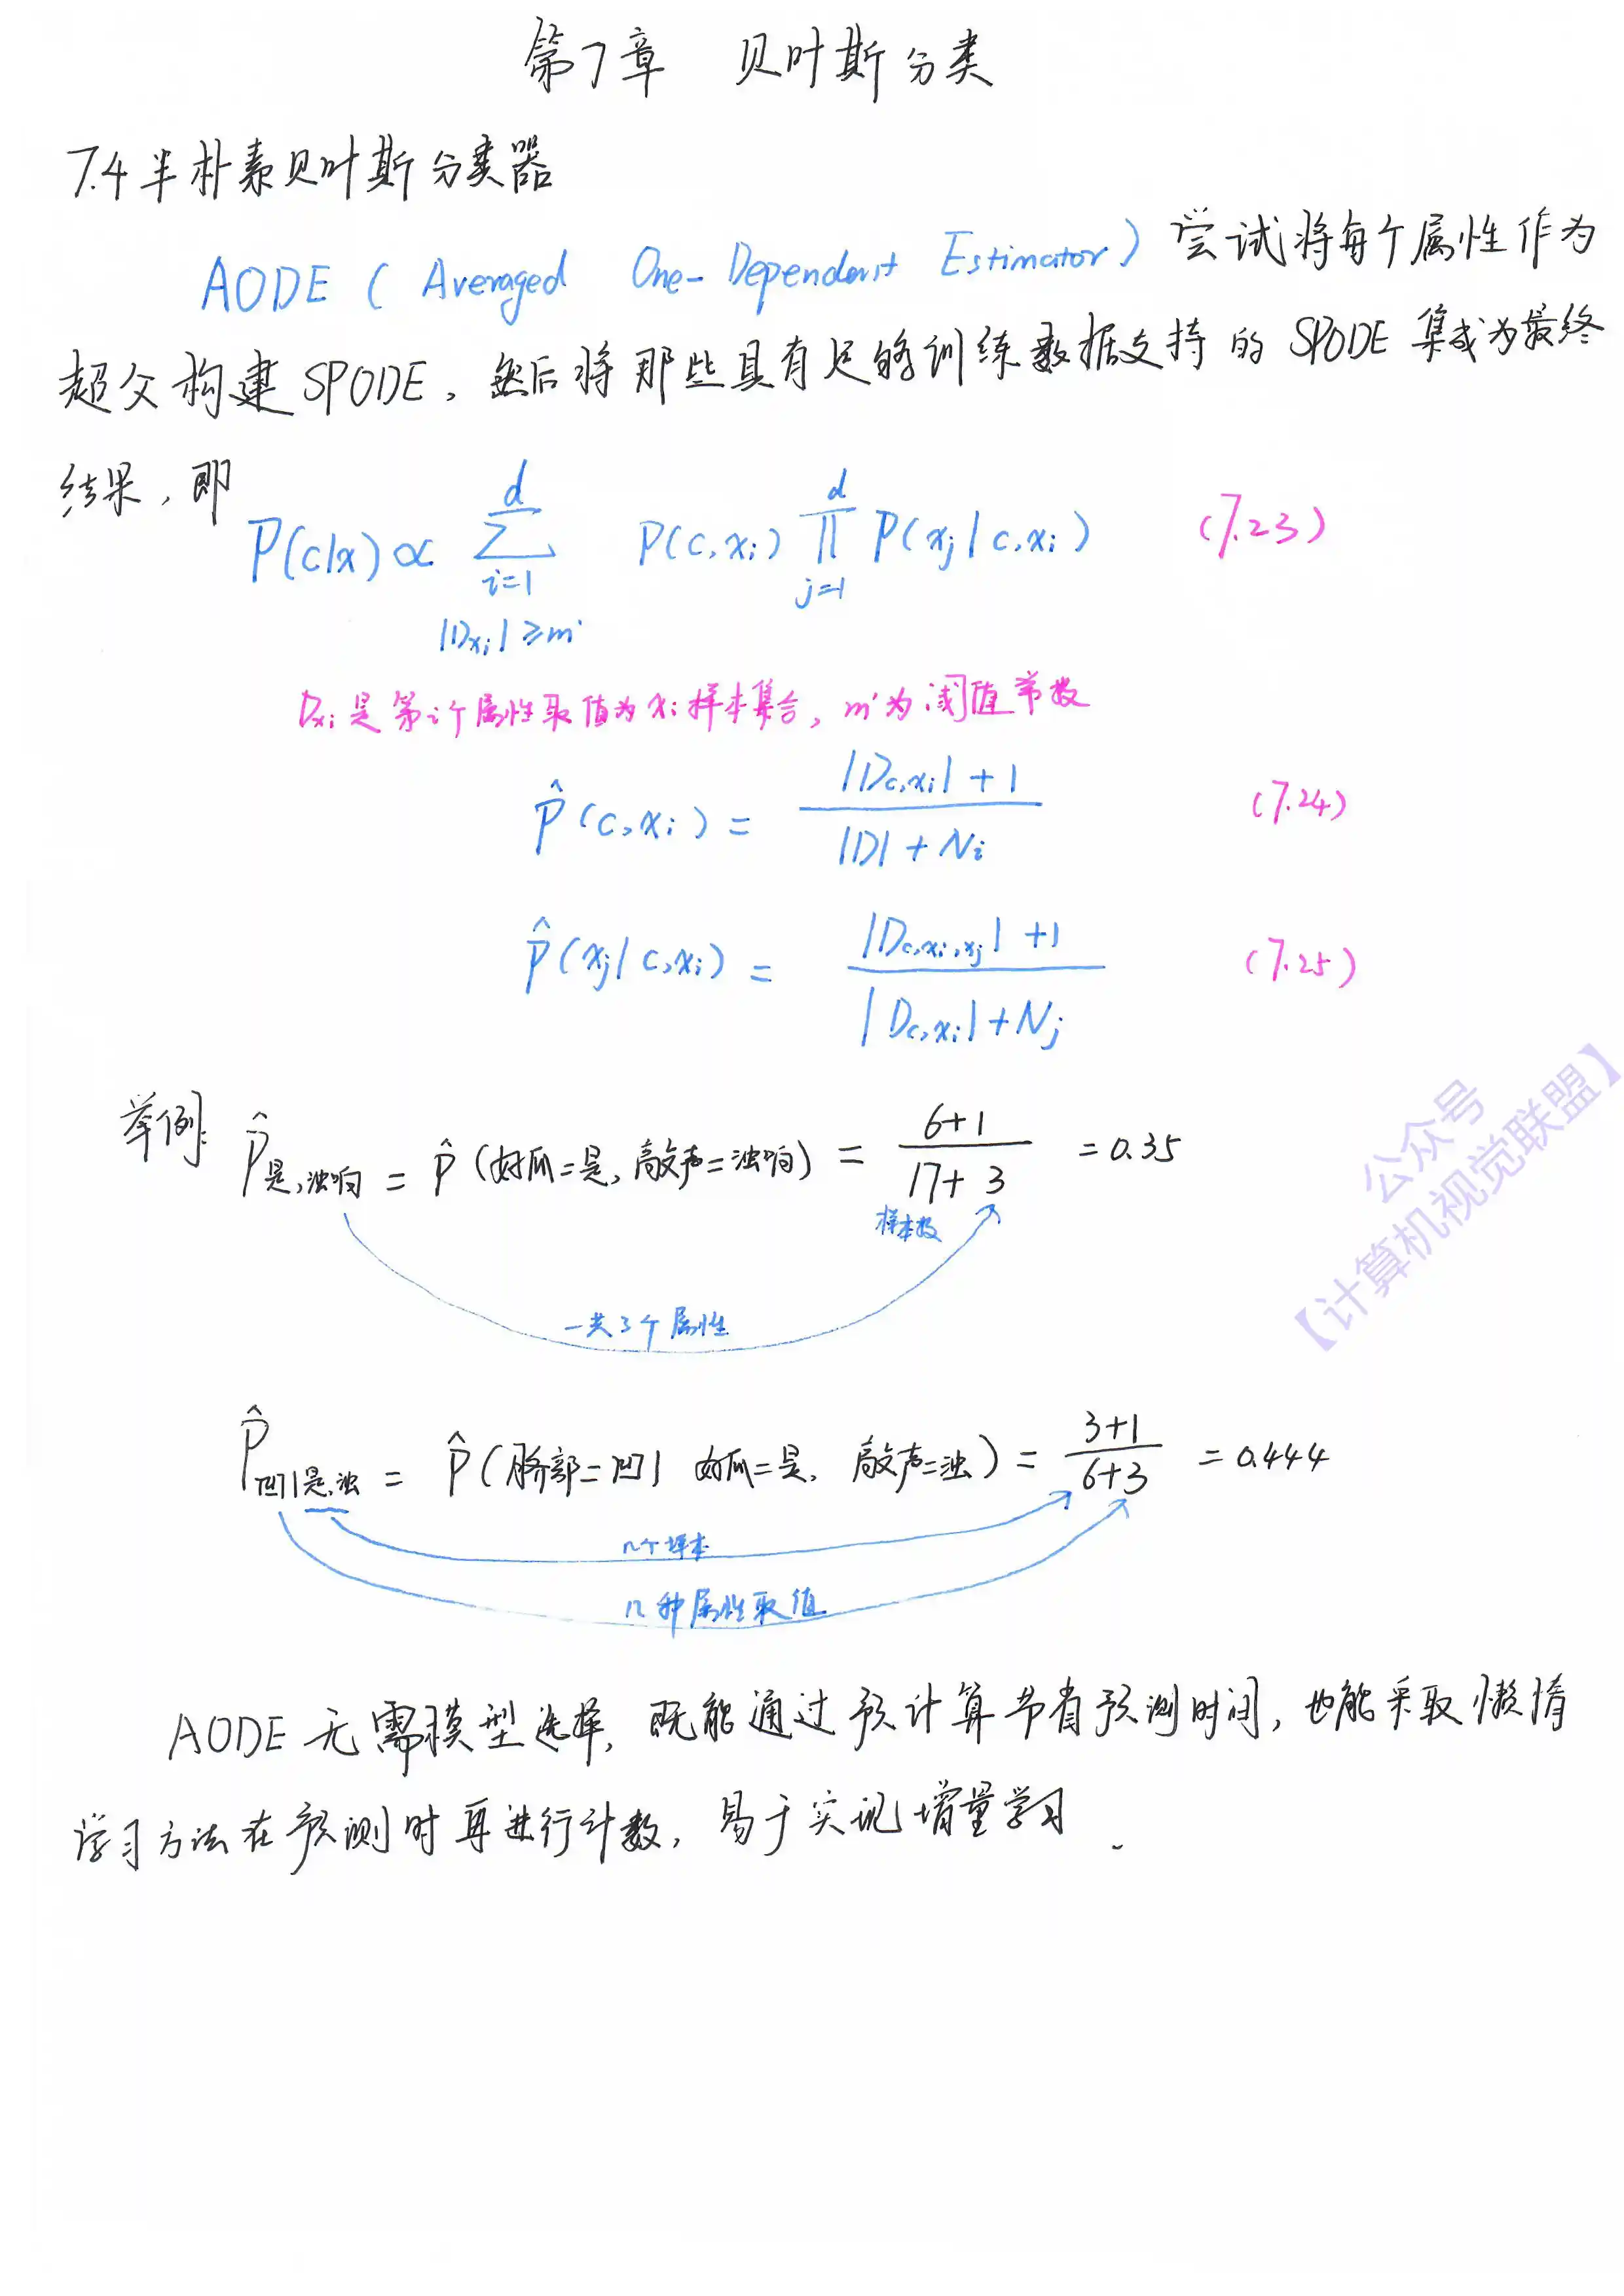 第7章 贝叶斯分类
7.4 半朴素贝叶斯分类器
AODE ( Averaged One-Dependent Estimator ) 尝试将每个属性作为
超父构建 SPODE, 然后将那些具有足够训练数据支持的 SPODE 集成为最终
结果, 即
P(c|x) ∝ ∑_{i=1, |D_{x_i}| ≥ m'}^{d} P(c, x_i) ∏_{j=1}^{d} P(x_j | c, x_i) (7.23)
D_{x_i} 是第 i 个属性取值为 x_i 样本集合, m' 为阈值常数
P̂(c, x_i) = (|D_{c,x_i}| + 1) / (|D| + N_i) (7.24)
P̂(x_j | c, x_i) = (|D_{c,x_i,x_j}| + 1) / (|D_{c,x_i}| + N_j) (7.25)
举例: P̂_{是,浊响} = P̂(好瓜=是, 敲声=浊响) = (6+1) / (17+3) = 0.35
样本数
一共3个属性
P̂_{凹|是,浊} = P̂(脐部=凹 | 好瓜=是, 敲声=浊) = (3+1) / (6+3) = 0.444
几个样本
几种属性取值
AODE 无需模型选择, 既能通过预计算节省预测时间, 也能采取懒惰
学习方法在预测时再进行计数, 易于实现增量学习.
公众号
【计算机视觉联盟】